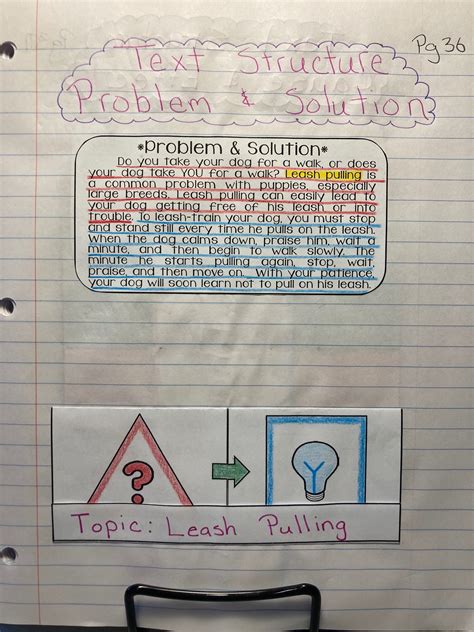 Pg 36
Text Structure
Problem & Solution
*Problem & Solution*
Do you take your dog for a walk, or does
your dog take YOU for a walk? Leash pulling is
a common problem with puppies, especially
large breeds. Leash pulling can easily lead to
your dog getting free of his leash or into
trouble. To leash-train your dog, you must stop
and stand still every time he pulls on the leash.
When the dog calms down, praise him, wait a
minute, and then begin to walk slowly. The
minute he starts pulling again, stop, wait,
praise, and then move on. With your patience,
your dog will soon learn not to pull on his leash.
?
Topic: Leash Pulling